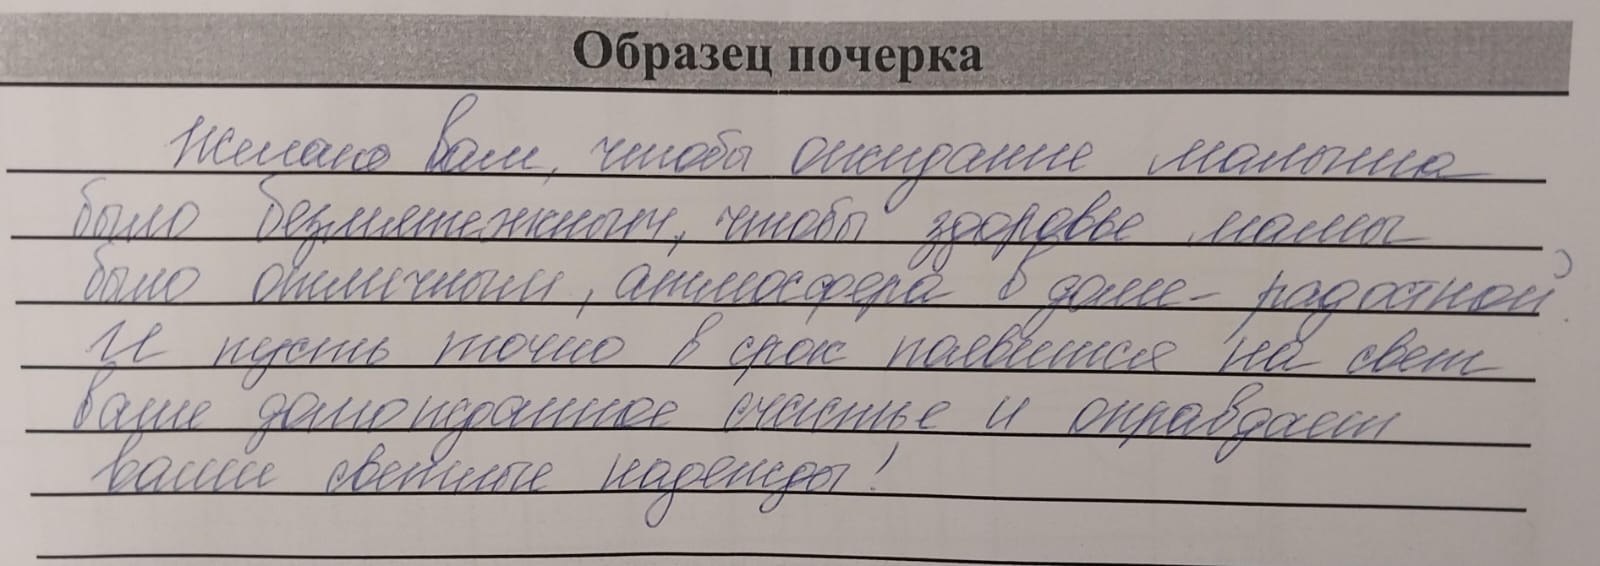 Образец почерка
Желаю вам, чтобы ожидание малыша
было безмятежным, чтобы здоровье мамы
было отличным, атмосфера в доме - радостной.
И пусть точно в срок появится на свет
ваше долгожданное счастье и оправдает
ваши светлые надежды!